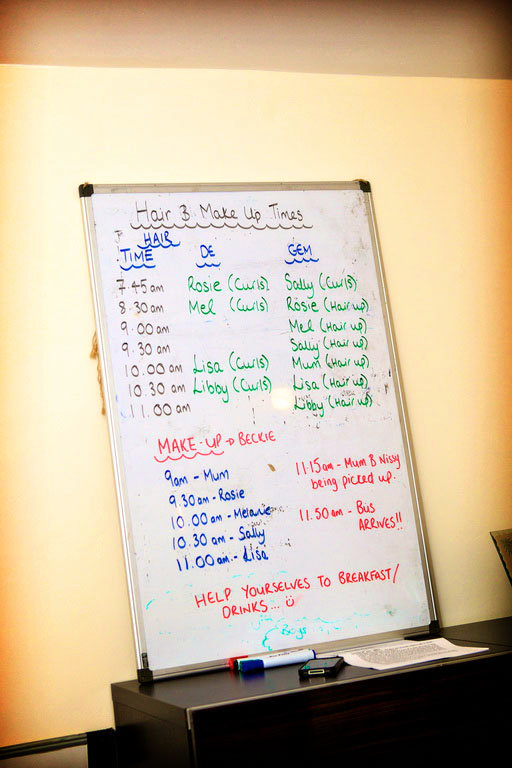 Hair & Make Up Times
HAIR
TIME DE GEM
7.45am Rosie (Curls) Sally (Curls)
8.30am Mel (Curls) Rosie (Hair up)
9.00am Mel (Hair up)
9.30am Sally (Hair up)
10.00am Lisa (Curls) Mum (Hair up)
10.30am Libby (Curls) Lisa (Hair up)
11.00am Libby (Hair up)
MAKE-UP → BECKIE
9am - Mum
9.30am - Rosie
10.00am - Melanie
10.30am - Sally
11.00am - Lisa
11.15am - Mum & Nissy
being picked up.
11.50am - BUS
ARRIVES!!
HELP YOURSELVES TO BREAKFAST/
DRINKS...
Boys